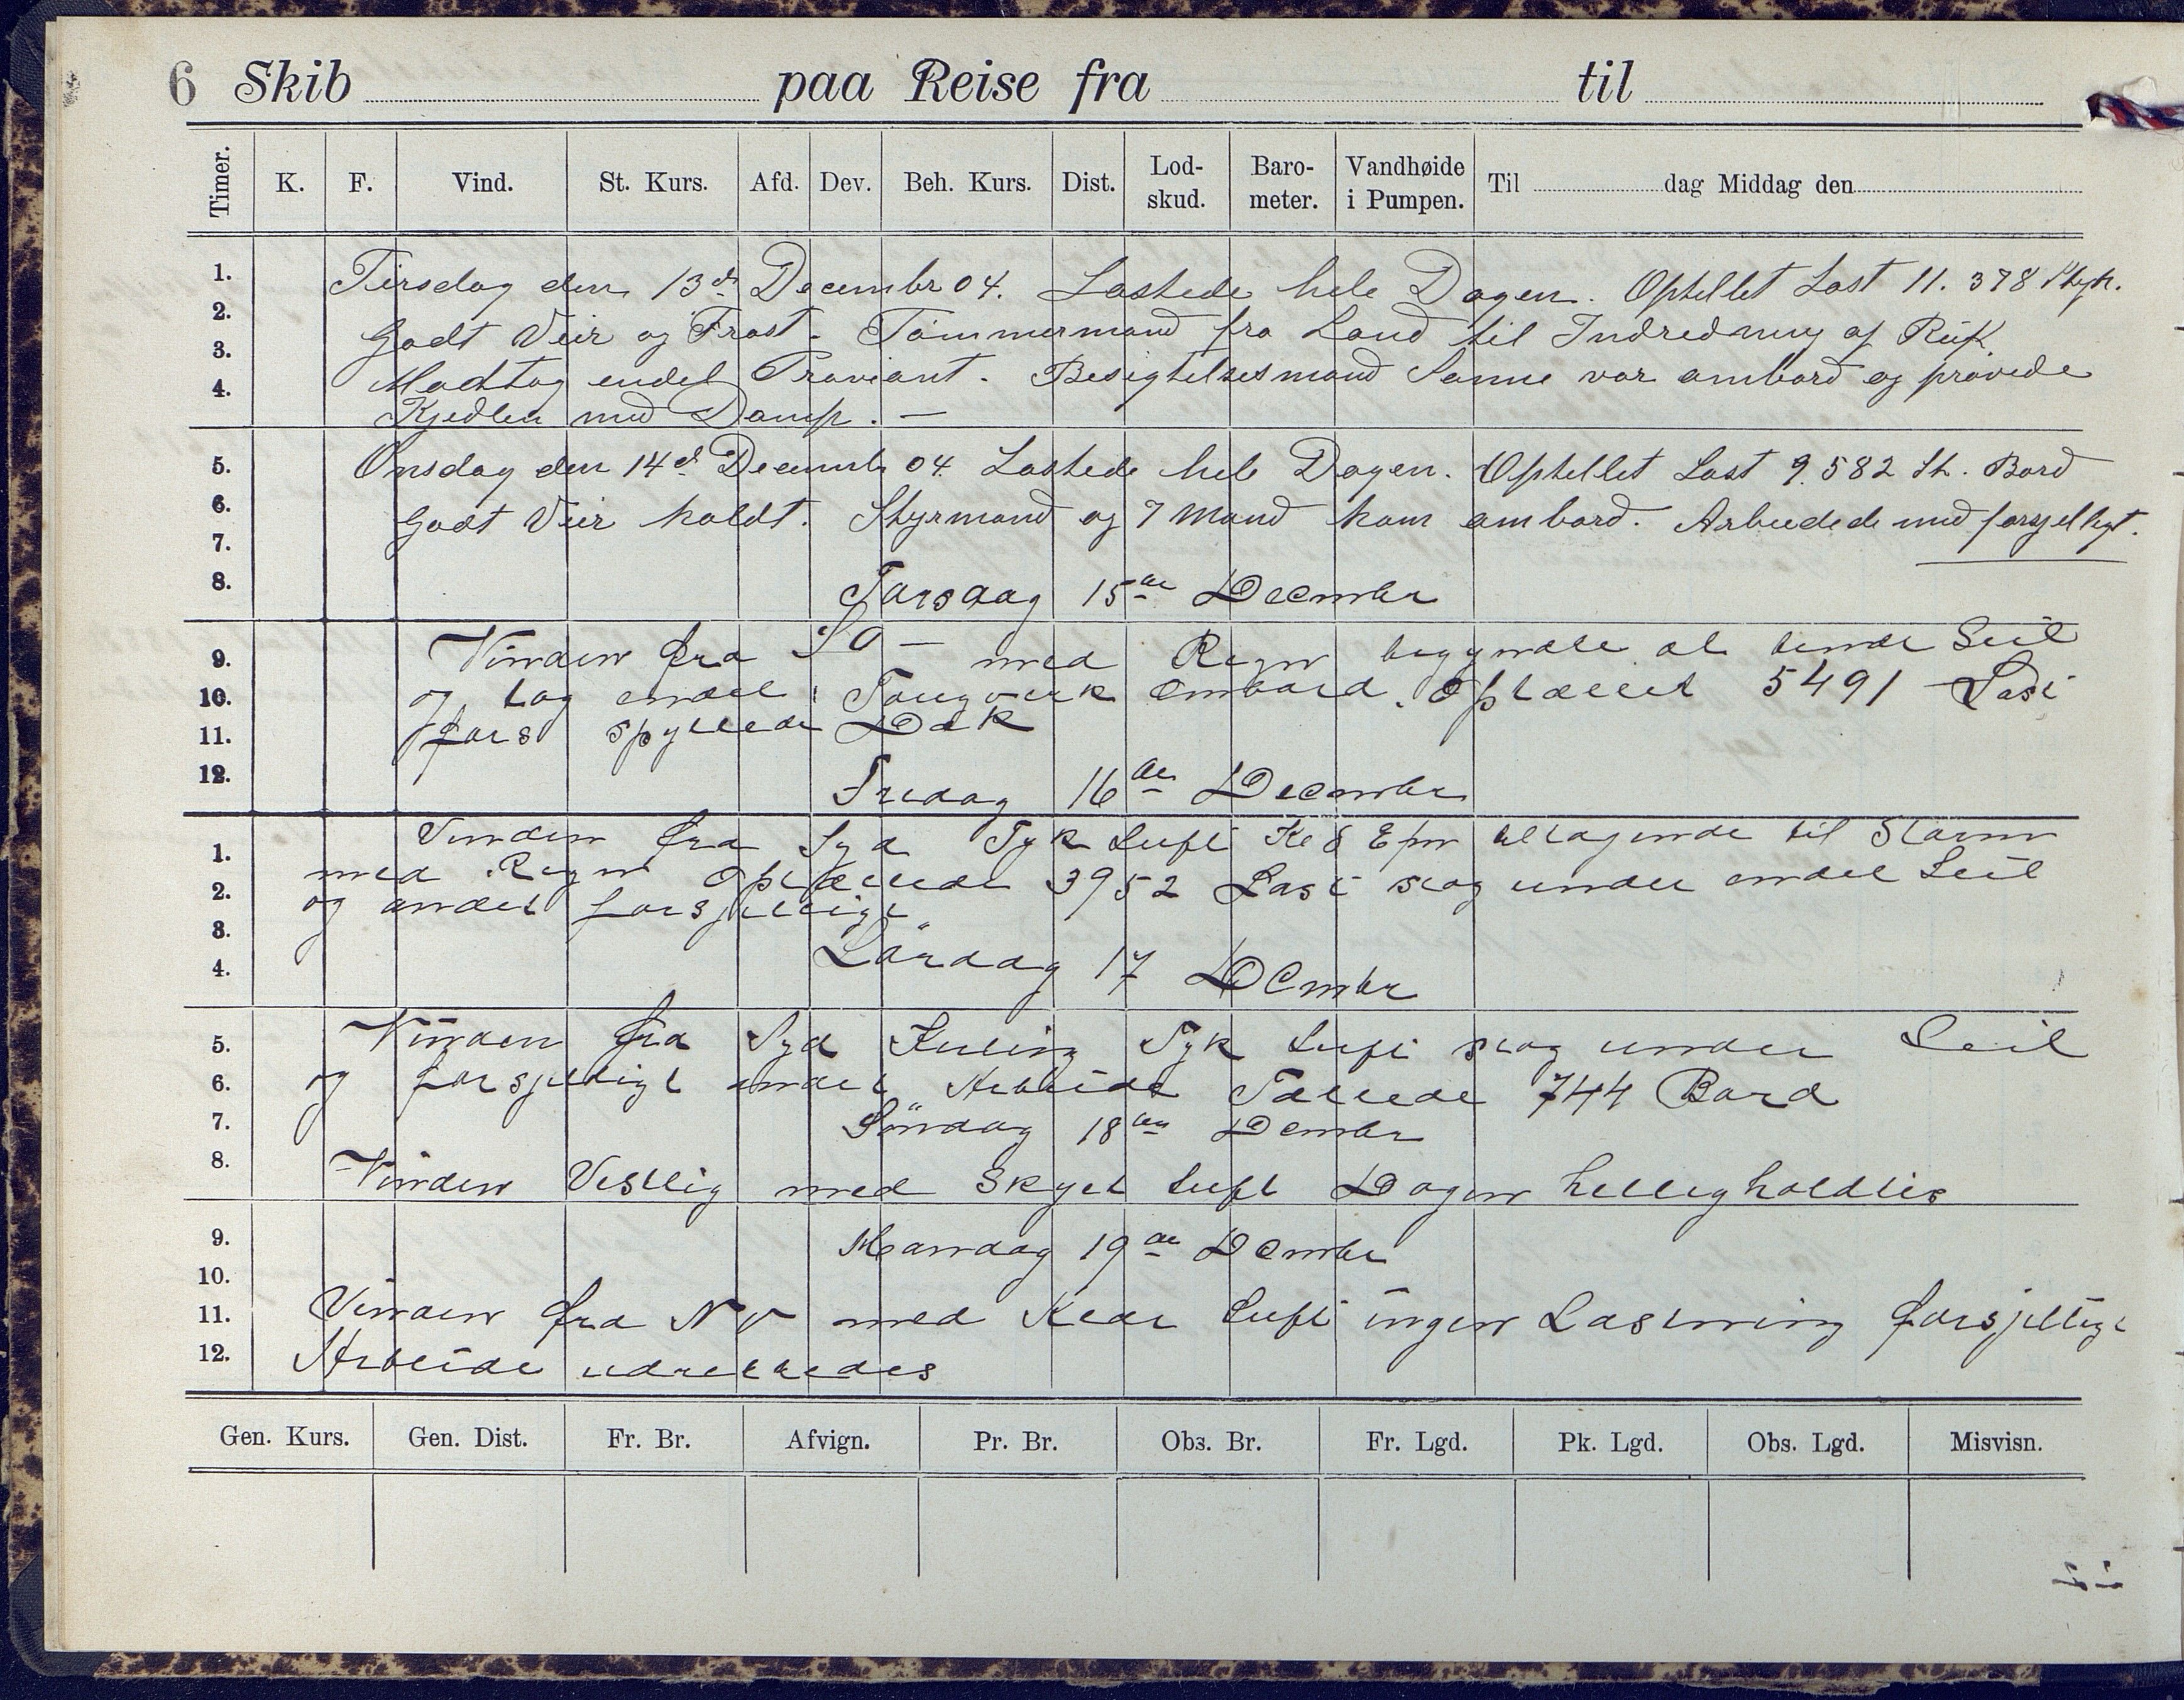 6 Skib paa Reise fra til
Timer. K. F. Vind. St. Kurs. Afd. Dev. Beh. Kurs. Dist. Lod-skud. Baro-meter. Vandhøide i Pumpen. Til dag Middag den
1. Tirsdag den 13de Decembr 04. Lastede hele Dagen. Optellet Last 11.378
2. Godt Veir og Frost. Tømmermand fra Land til Indredning af Ruf.
3. Modtog endel Proviant. Besigtelsesmand Sanne var ombord og prøvede
4. Kjedlen med Damp. —
5. Onsdag den 14d Decembr 04 Lastede hele Dagen. Optellet Last 9.582 St. Bord
6. Godt Veir koldt. Styrmand og 7 Mand kom ombord. Arbeidede med forsjelligt.
7.
8. Torsdag 15de Decembr
9. Vinden fra SO — med Regn begyndte at bende Seil
10. og tog endel Tougverk ombord. Optællet 5491 Last
11. fors spyllede Dæk
12. Fredag 16de Decembr
1. Vinden fra Syd Tyk Luft Kl 8 Epm tiltagende til Storm
2. med Regn Optællede 3952 Last slog under endel Seil
3. og andet forsjelligt
4. Lördag 17 Decmbr
5. Vinden fra Syd Kuling Tyk Luft slog under Seil
6. og forsjelligt andet Arbeide Tællede 744 Bord
7. Söndag 18de Dcembr
8. Vinden Vestlig med Skyet Luft Dagen helligholdtes
9. Mandag 19de Dcembr
10.
11. Vinden fra NV med Klar Luft ingen Lastning forsjelligt
12. Arbeide udrettedes
Gen. Kurs. Gen. Dist. Fr. Br. Afvign. Pr. Br. Obs. Br. Fr. Lgd. Pk. Lgd. Obs. Lgd. Misvisn.